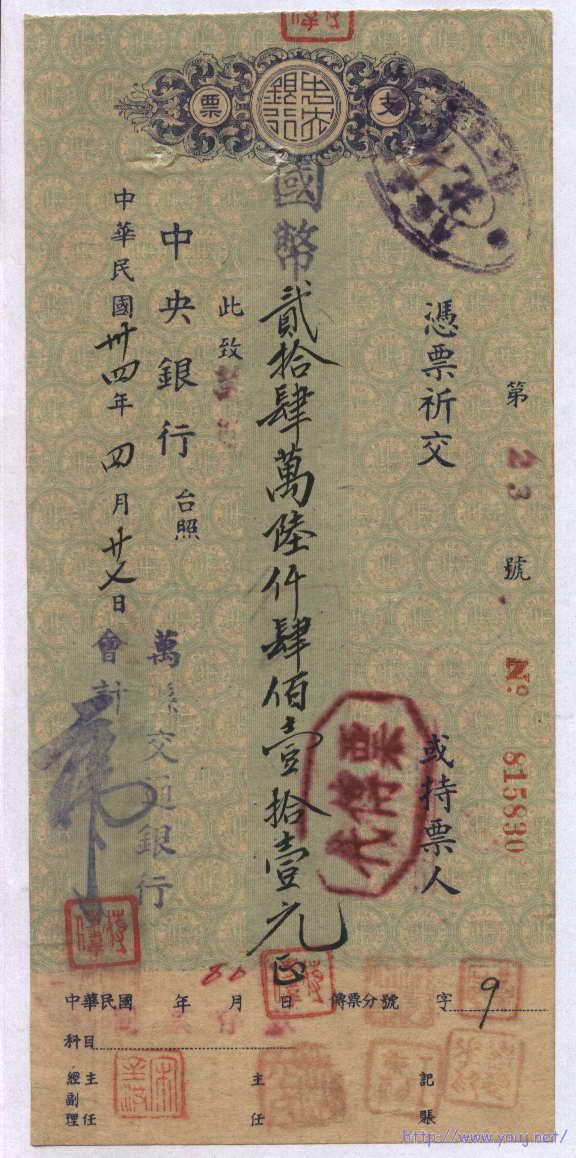 支票
中央銀行
第 23 號 No. 815890
憑票祈交 或持票人
代傳票
國幣貳拾肆萬陸仟肆佰壹拾壹元正
此致
中央銀行 台照
萬縣交通銀行
會計
中華民國卅四年四月廿七日
中華民國 年 月 日 傳票分號 字 9
80
科目
經副理 主任 主任 記賬
http://www.youj.net/